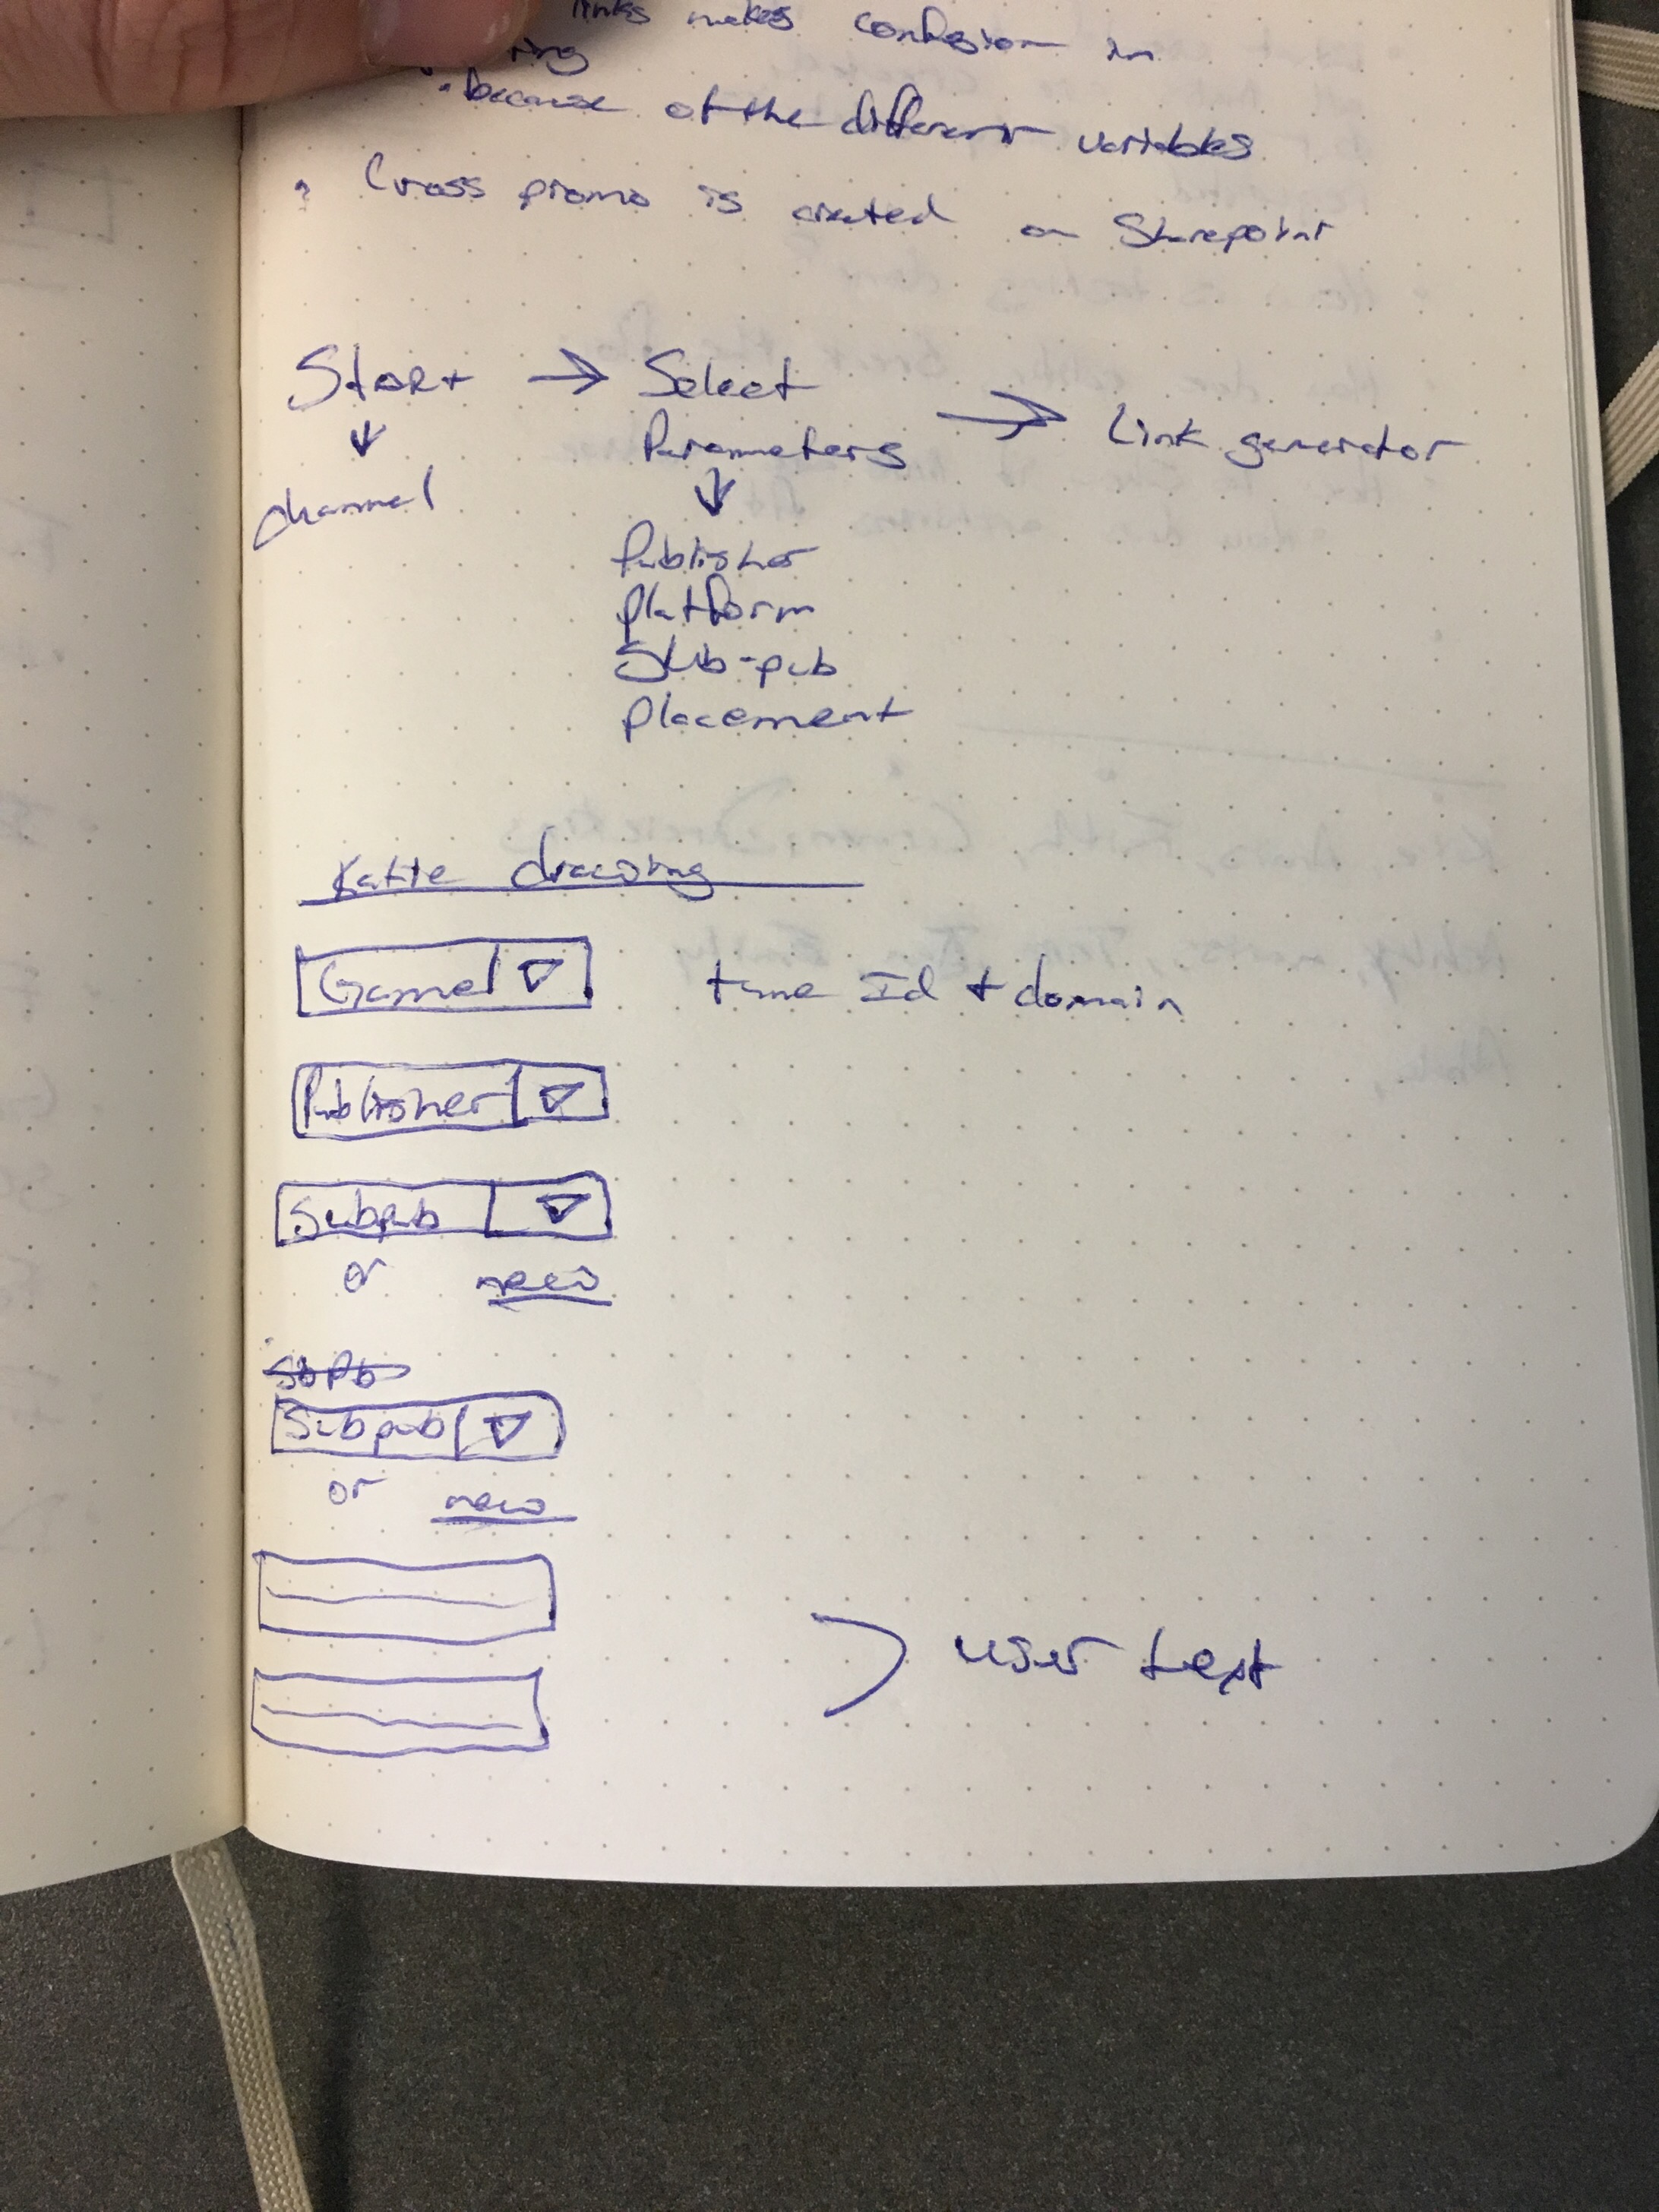 links makes confusion in
because of the different variables
Cross promo is created on Sharepoint
Start → Select Parameters → Link generator
↓ ↓
channel
Publisher
platform
Sub-pub
placement
Katie drawing
Game ▽ tune Id + domain
Publisher ▽
Subpub ▽
or new
SbPb
Subpub ▽
or new
user text